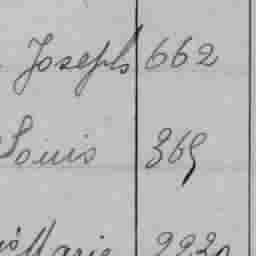 Joseph 662
Louis 369
Marie